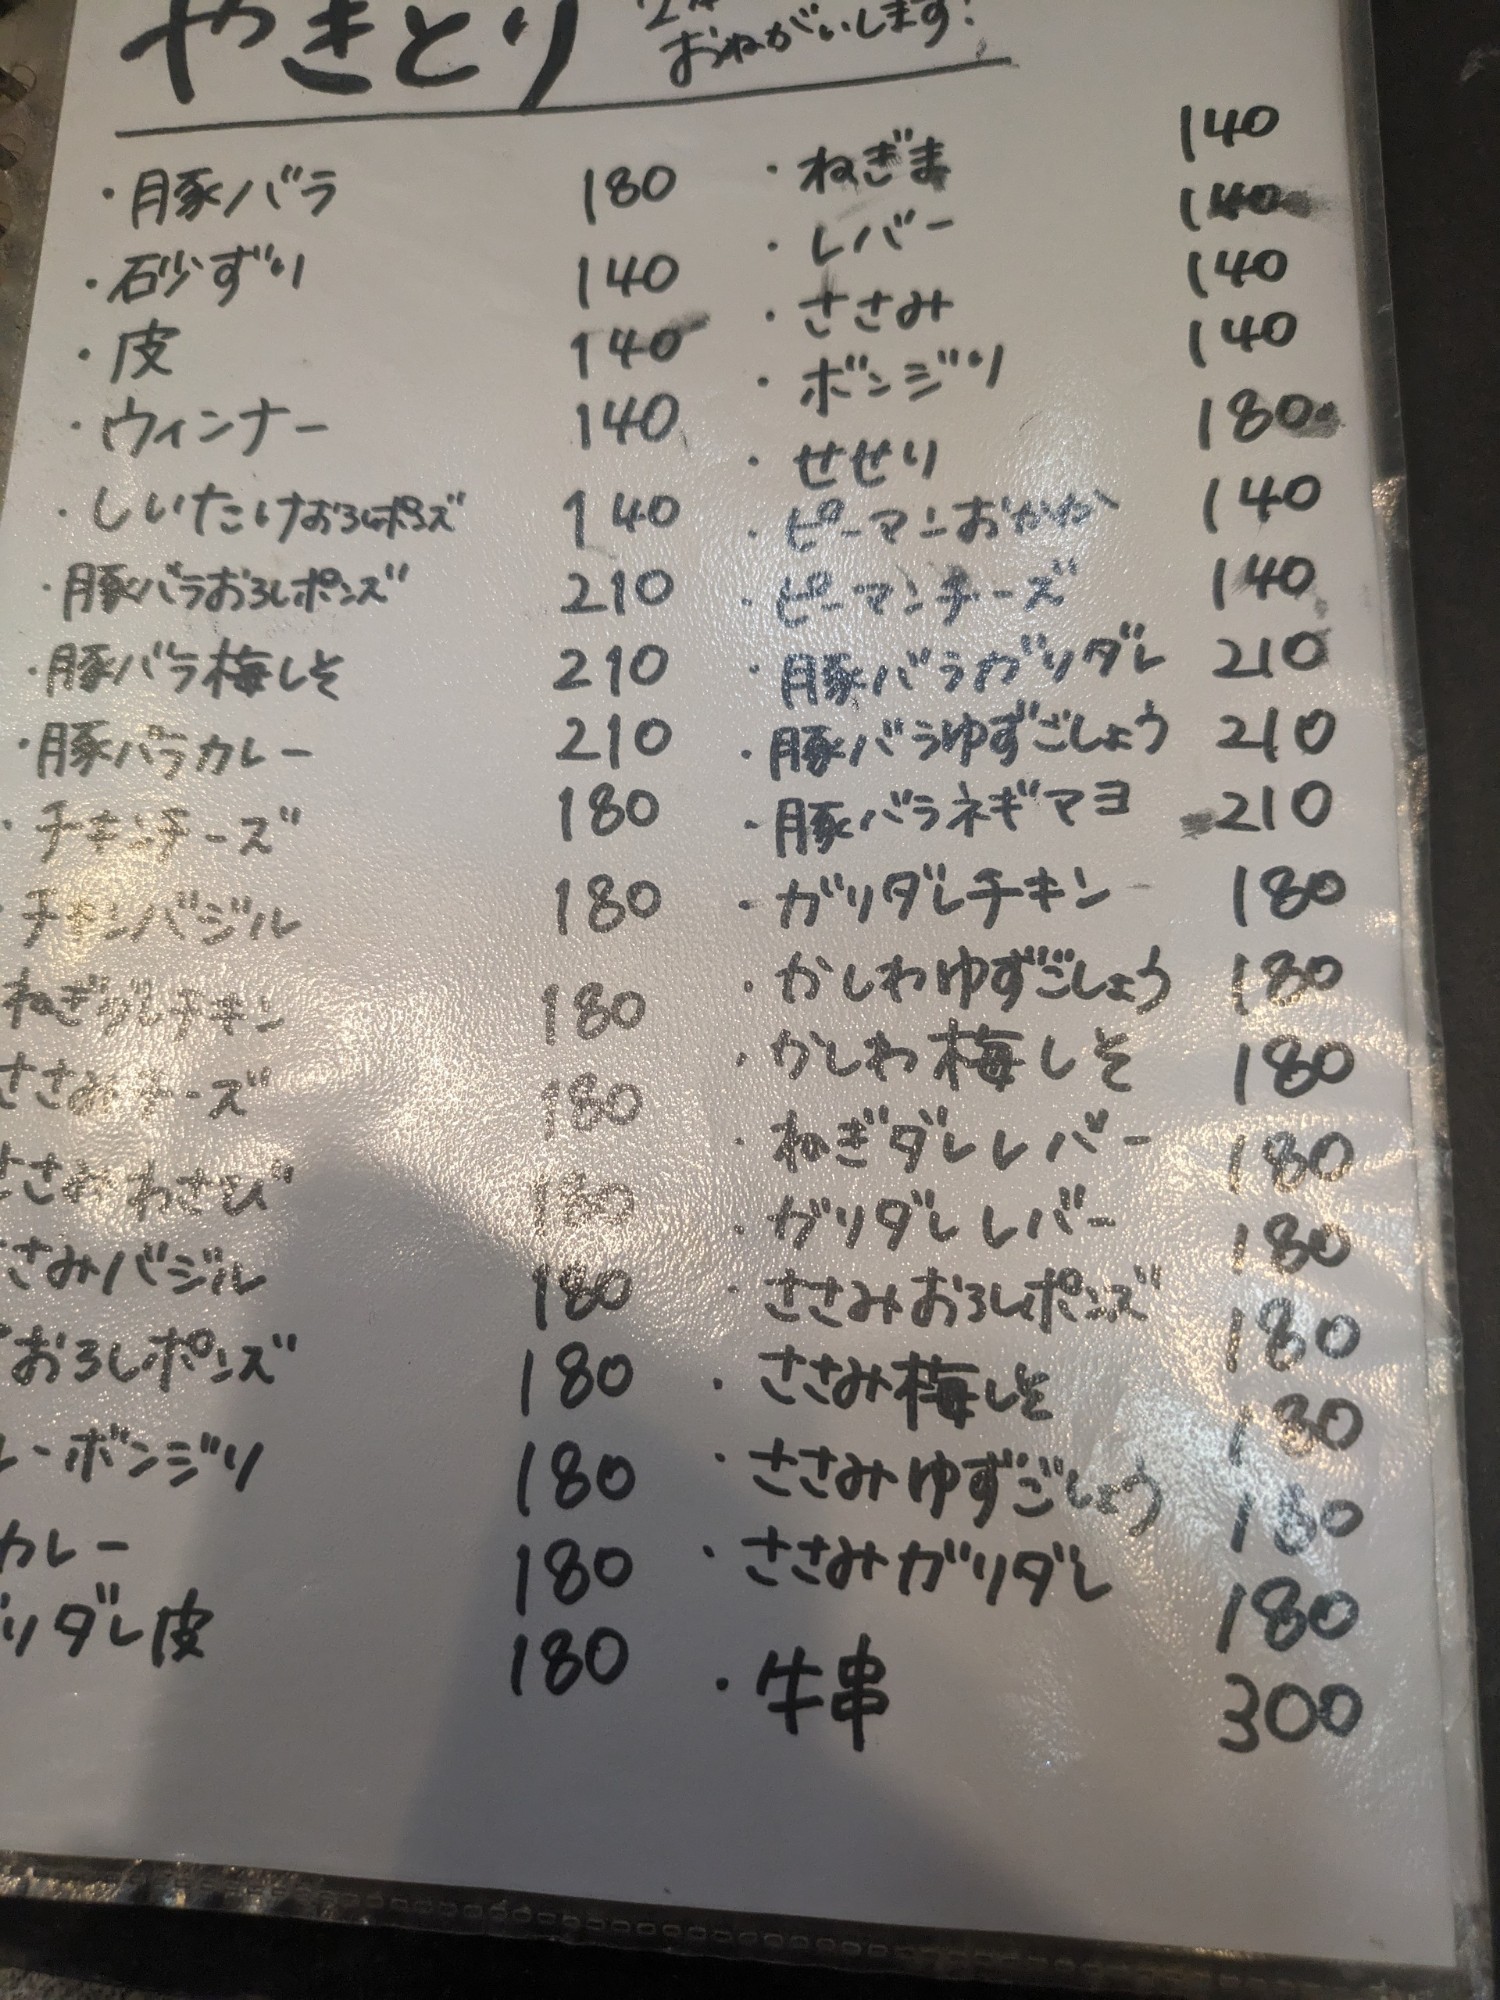 やきとり
おねがいします!
・豚バラ 180
・砂ずり 140
・皮 140
・ウィンナー 140
・しいたけおろしポンズ 140
・豚バラおろしポンズ 210
・豚バラ梅しそ 210
・豚バラカレー 210
・チキンチーズ 180
・チキンバジル 180
ねぎダレチキン 180
ささみチーズ 180
ささみわさび 180
ささみバジル 180
おろしポンズ 180
レーボンジリ 180
カレー 180
リダレ皮 180
・ねぎま 140
・レバー 140
・ささみ 140
・ボンジリ 140
・せせり 180
・ピーマンおかか 140
・ピーマンチーズ 140
・豚バラガリダレ 210
・豚バラゆずごしょう 210
・豚バラネギマヨ 210
・ガリダレチキン 180
・かしわゆずごしょう 180
・かしわ梅しそ 180
・ねぎダレレバー 180
・ガリダレレバー 180
・ささみおろしポンズ 180
・ささみ梅しそ 180
・ささみゆずごしょう 180
・ささみガリダレ 180
・牛串 300